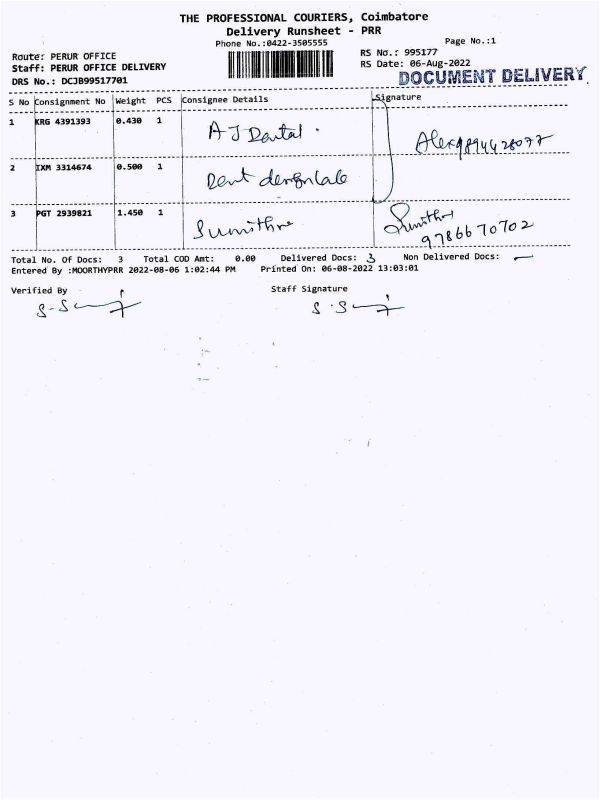 THE PROFESSIONAL COURIERS, Coimbatore
Delivery Runsheet - PRR
Phone No.:0422-3505555
Page No.:1
Route: PERUR OFFICE
RS No.: 995177
Staff: PERUR OFFICE DELIVERY
RS Date: 06-Aug-2022
DRS No.: DCJB99517701
DOCUMENT DELIVERY
S No Consignment No Weight PCS Consignee Details Signature
1 KRG 4391393 0.430 1 A J Dental
Alex 9894428077
2 IXM 3314674 0.500 1 Dent
3 PGT 2939821 1.450 1 Sumithra
9786670702
Total No. Of Docs: 3 Total COD Amt: 0.00 Delivered Docs: 3 Non Delivered Docs: —
Entered By :MOORTHYPRR 2022-08-06 1:02:44 PM Printed On: 06-08-2022 13:03:01
Verified By Staff Signature